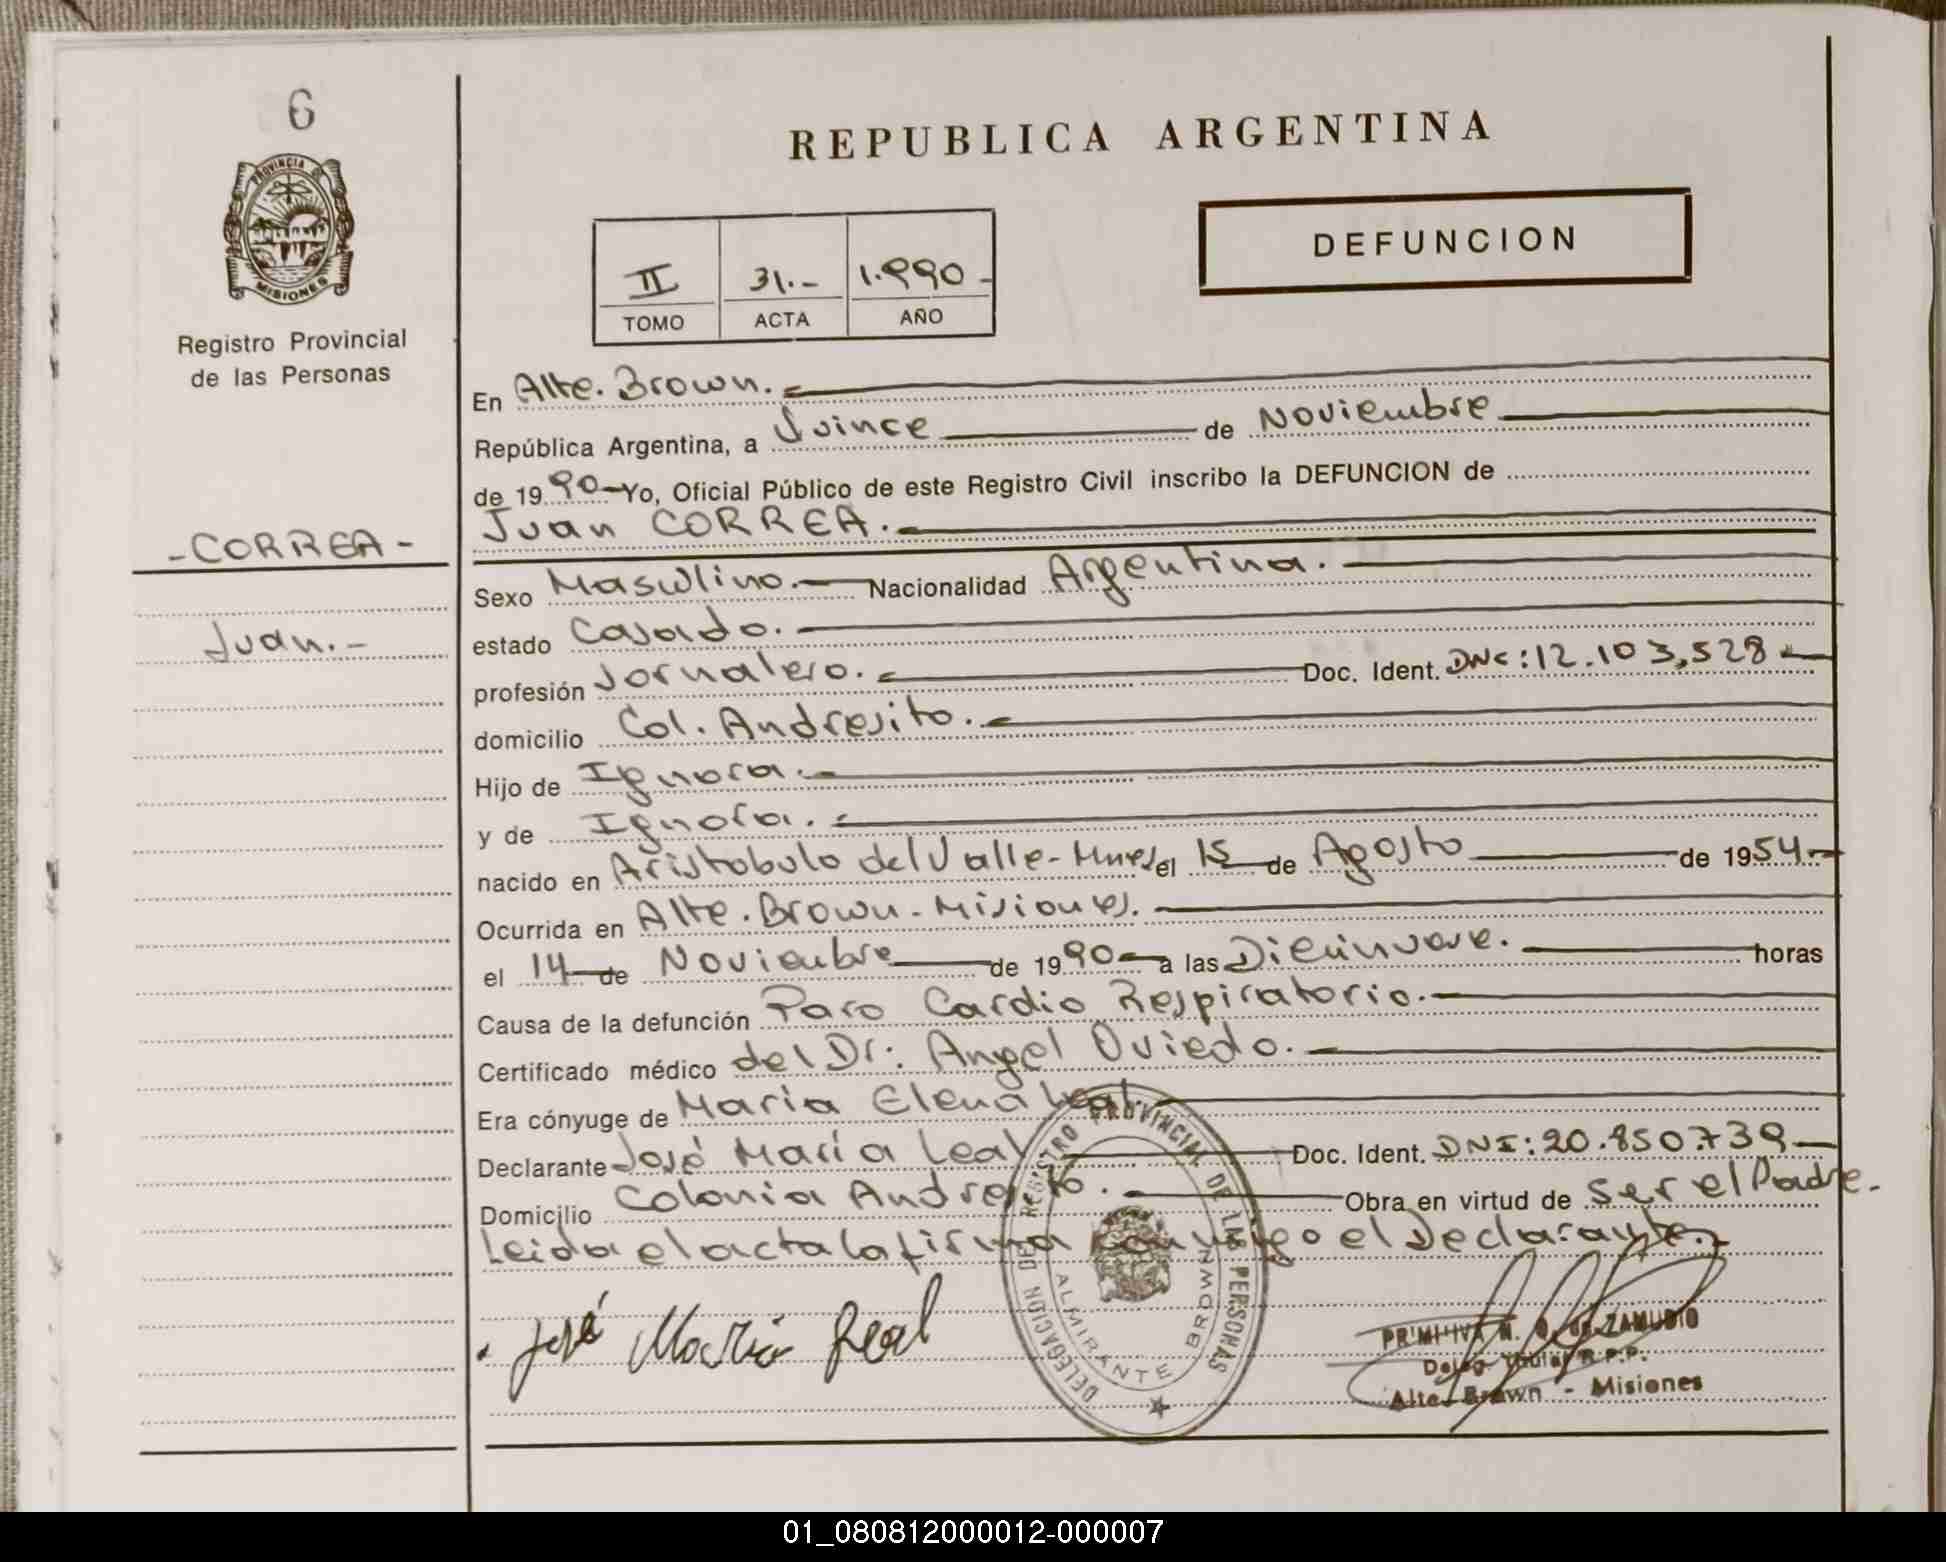 6
PROVINCIA DE
MISIONES
Registro Provincial
de las Personas
REPUBLICA ARGENTINA
II 31.- 1.990-
TOMO ACTA AÑO
DEFUNCION
En Alte. Brown.
República Argentina, a Quince de Noviembre
de 1990 Yo, Oficial Público de este Registro Civil inscribo la DEFUNCION de
-CORREA-
Juan CORREA.
Sexo Masculino. Nacionalidad Argentina.
Juan.-
estado Casado.
profesión Jornalero. Doc. Ident. 12.103,528
domicilio Col. Andresito.
Hijo de Ignora.
y de Ignora.
nacido en Aristobulo del Valle- el 15 de Agosto de 1954
Ocurrida en Alte. Brown-Misiones.
el 14 de Noviembre de 1990 a las Diecinueve. horas
Causa de la defunción Paro Cardio Respiratorio.
Certificado médico del Dr: Angel Oviedo.
Era cónyuge de Maria Elena Leal.
Declarante José María Leal Doc. Ident. DNI:20.850.739
Domicilio Colonia Andresito. Obra en virtud de ser el Padre.
Leida el acta la firma conmigo el Declarante.
José María Leal
DELEGACION DEL REGISTRO PROVINCIAL DE LAS PERSONAS
ALMIRANTE BROWN
PRIMITIVA N. DE ZAMUDIO
Deleg. Titular R.P.P.
Alte. Brown - Misiones
01_080812000012-000007